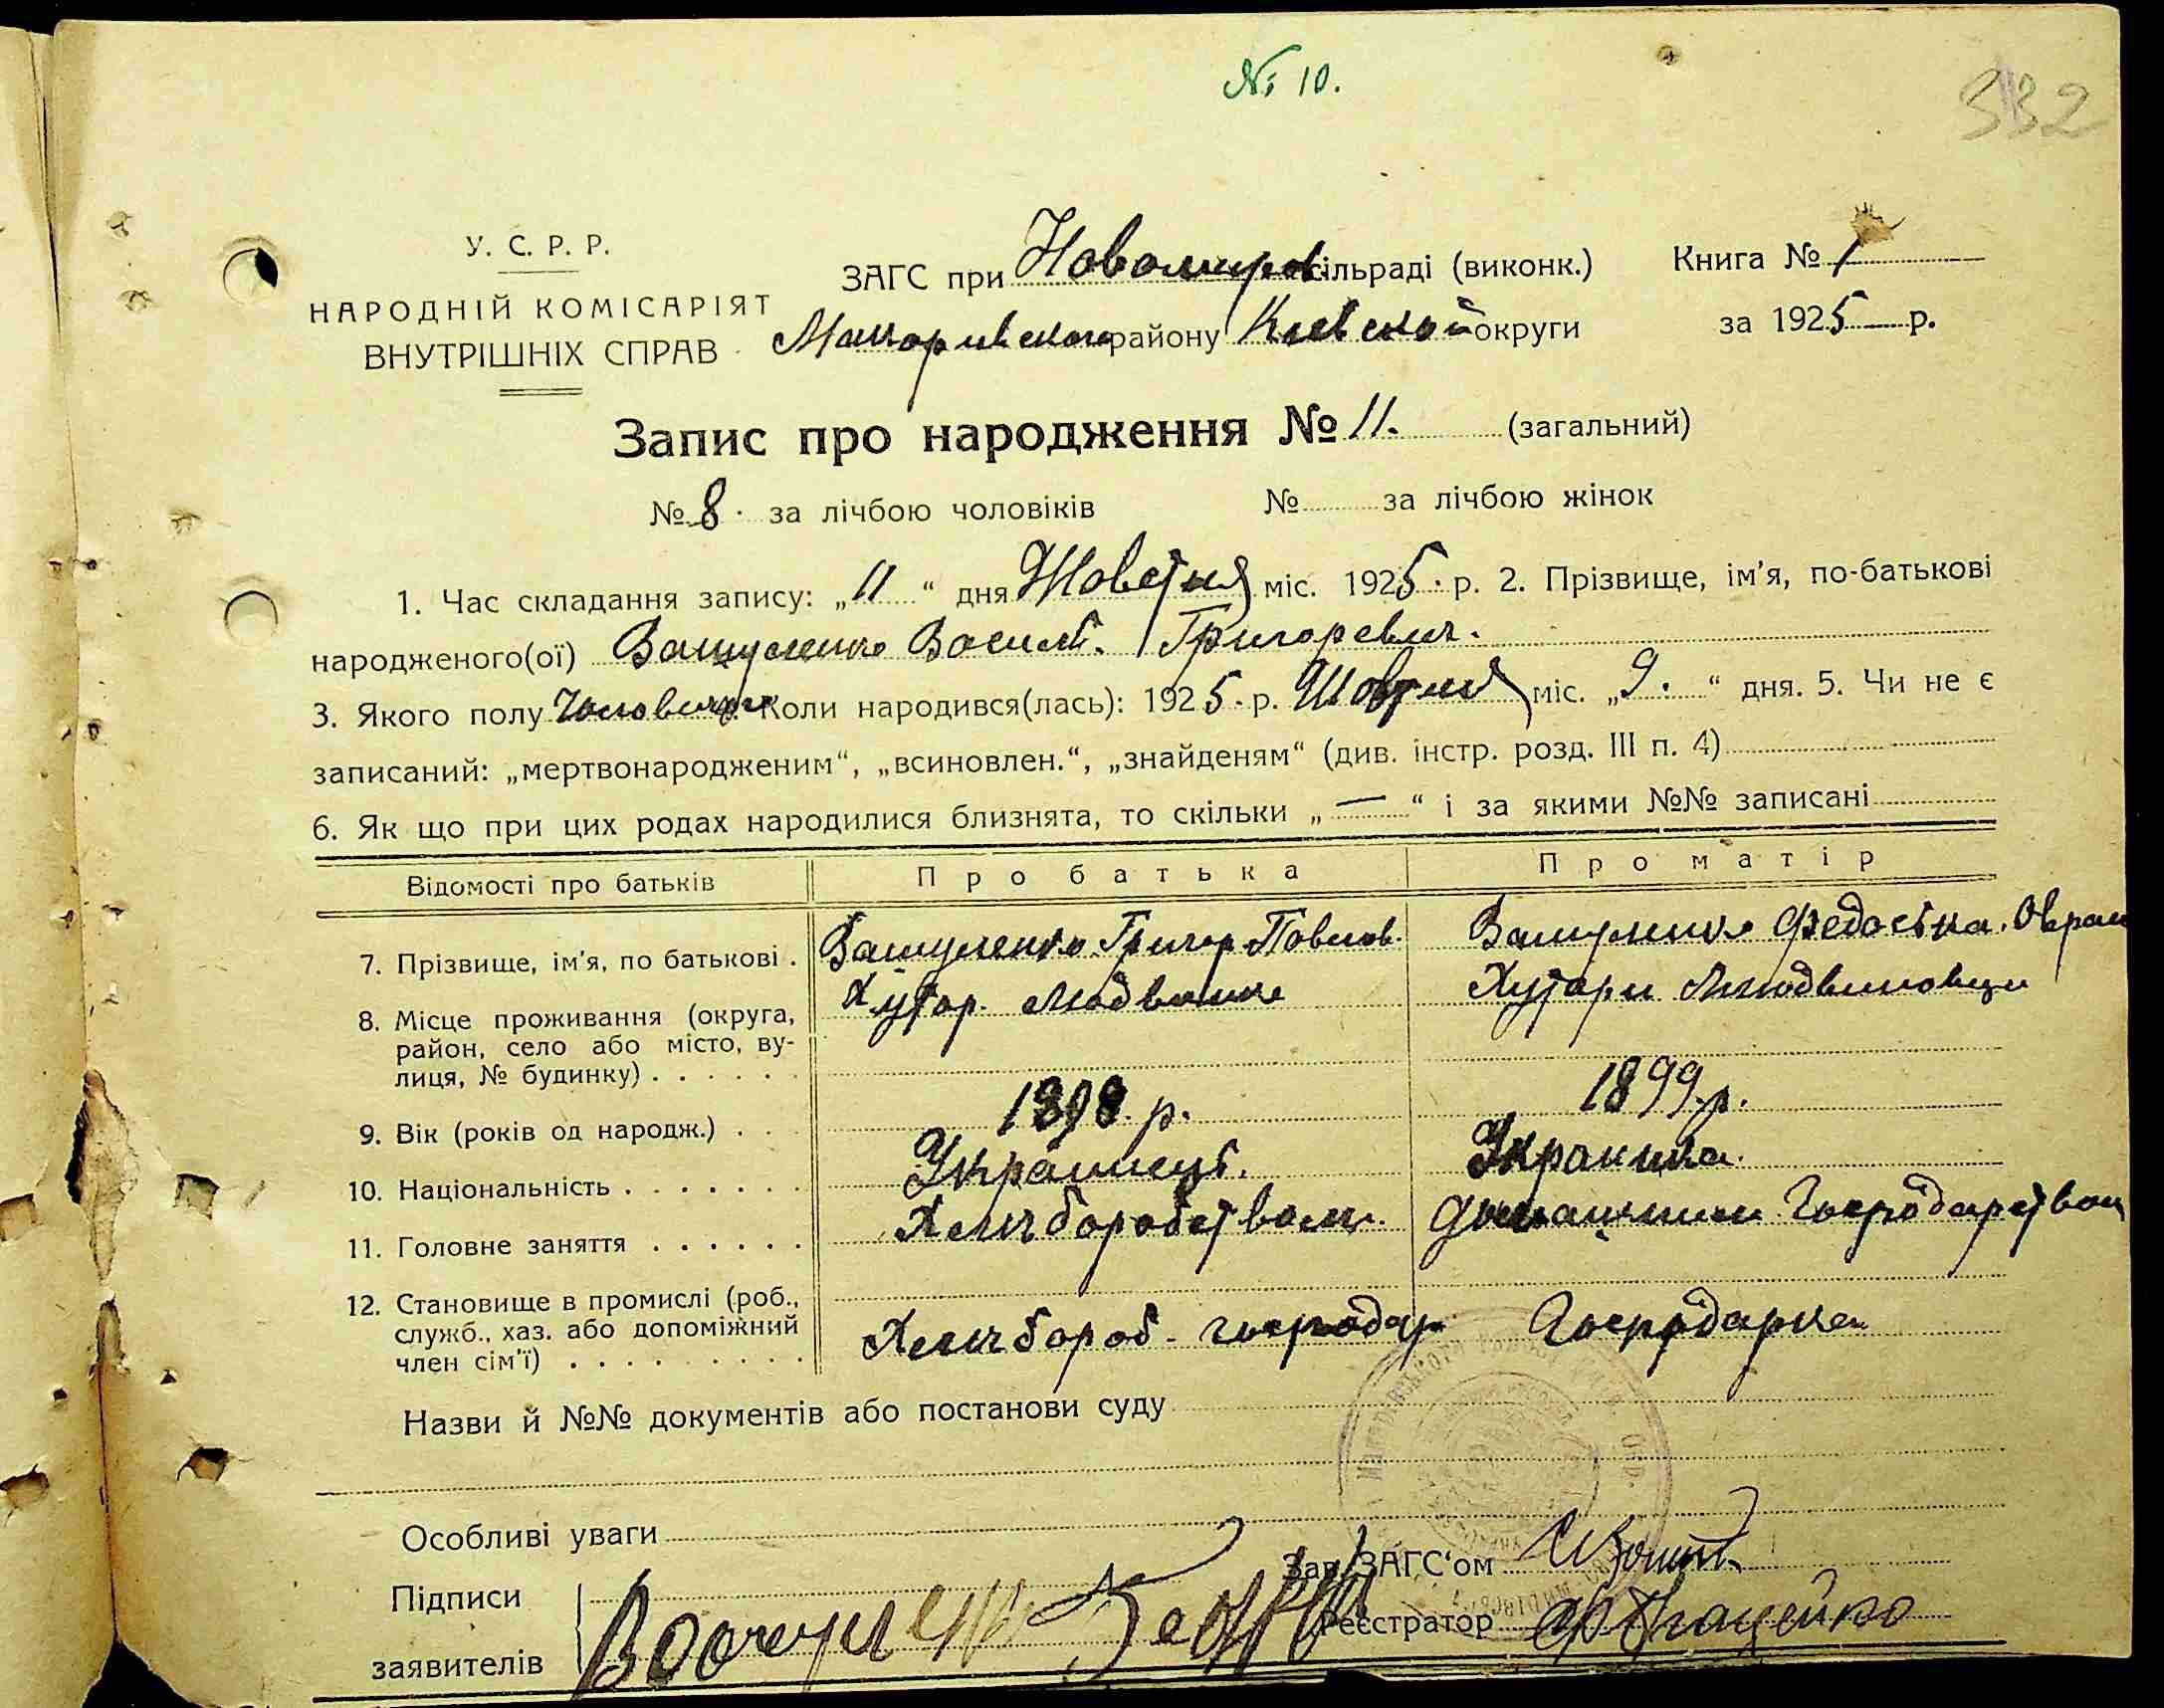 № 10.
332
У. С. Р. Р.
НАРОДНІЙ КОМІСАРІЯТ
ВНУТРІШНІХ СПРАВ
ЗАГС при Новомиров сільраді (виконк.)
Макаривского району Киевской округи
Книга № 1
за 1925 р.
Запис про народження № 11. (загальний)
№ 8. за лічбою чоловіків № за лічбою жінок
1. Час складання запису: „11“ дня Жовтня міс. 1925. р. 2. Прізвище, ім'я, по-батькові
народженого(ої) Вашуленко Василь. Григоревич.
3. Якого полу Коли народився(лась): 1925. р. Жовтня міс. „9.“ дня. 5. Чи не є
записаний: „мертвонародженим“, „всиновлен.“, „знайденям“ (див. інстр. розд. III п. 4)
6. Як що при цих родах народилися близнята, то скільки „—“ і за якими №№ записані
Відомості про батьків Про батька Про матір
7. Прізвище, ім'я, по батькові . Вашуленко Григор Павлов. Вашуленко Федоська.
8. Місце проживання (округа, Хутор. Хутари
район, село або місто, ву-
лиця, № будинку) . . . . . .
9. Вік (років од народж.) . . 1898. р. 1899. р.
10. Національність . . . . . . . Украинець. Украинка.
11. Головне заняття . . . . . . Хлиборобством. Господарством
12. Становище в промислі (роб.,
служб., хаз. або допоміжний Хлибороб - господар Господарка
член сім'ї) . . . . . . . . .
Назви й №№ документів або постанови суду
Особливі уваги
Підписи
заявителів
Зав. ЗАГС'ом
Реєстратор